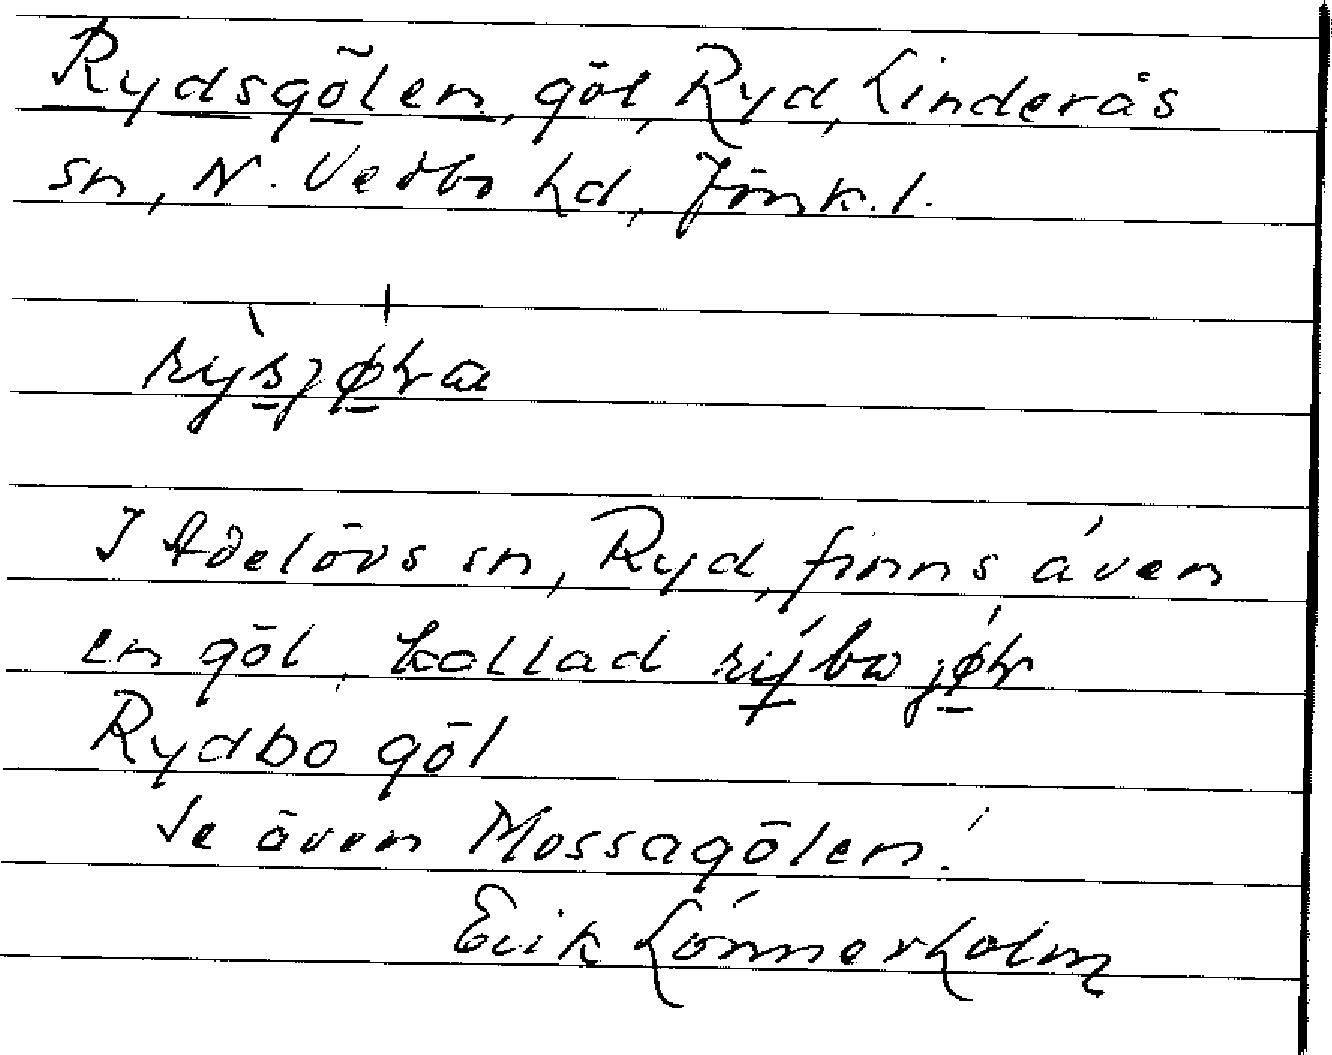 Rydsgölen, göl, Ryd, Linderås
sn, N. Vedbo hd, Jönk. l.
I Adelövs sn, Ryd, finns även
en göl, kallad
Rydbo göl
Se även Mossagölen!
Erik Lönnerholm